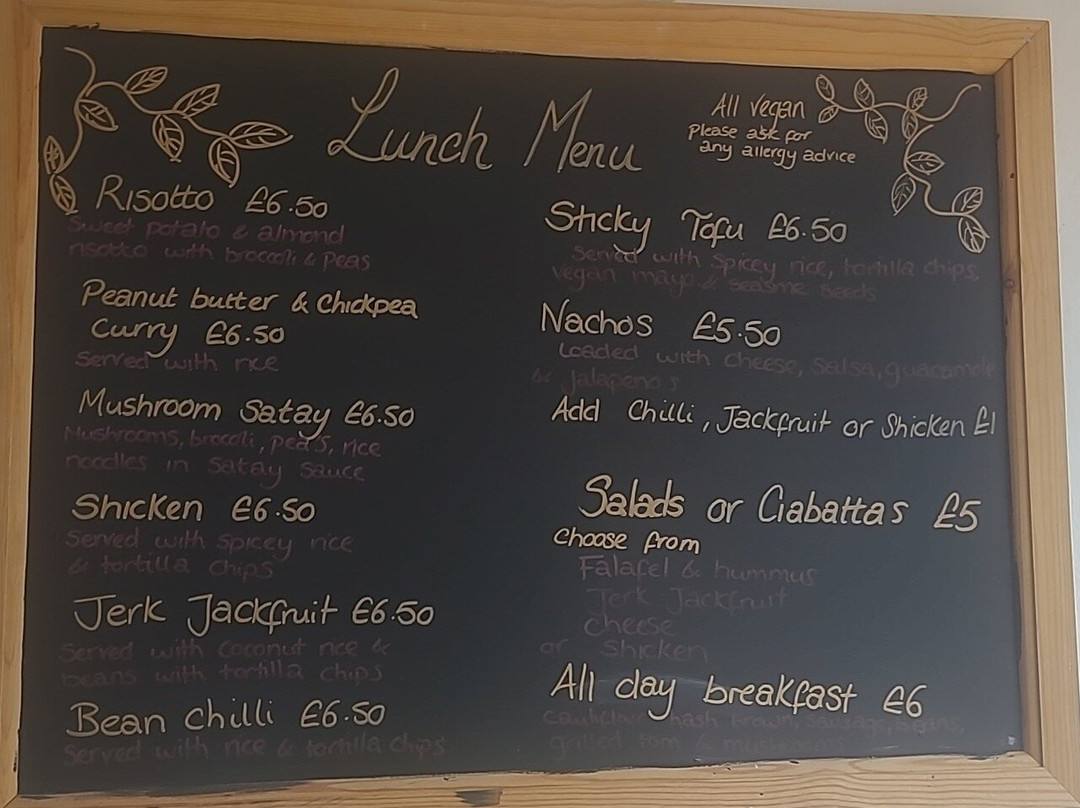 Lunch Menu
All vegan
Please ask for
any allergy advice
Risotto £6.50
Sweet potato & almond
risotto with broccoli & peas
Peanut butter & Chickpea
Curry £6.50
Served with rice
Mushroom Satay £6.50
Mushrooms, brocoli, peas, rice
noodles in Satay sauce
Shicken £6.50
Served with spicey rice
& tortilla chips
Jerk Jackfruit £6.50
Served with coconut rice &
beans with tortilla chips
Bean chilli £6.50
Served with rice & tortilla chips
Sticky Tofu £6.50
Served with Spicey rice, tortilla chips,
vegan mayo & seasme seeds
Nachos £5.50
Loaded with cheese, salsa, guacamole
& jalapeno's
Add Chilli, Jackfruit or Shicken £1
Salads or Ciabattas £5
Choose from
Falafel & hummus
Jerk Jackfruit
cheese
or Shicken
All day breakfast £6
hash brown, sausage, beans,
grilled tom & mushrooms